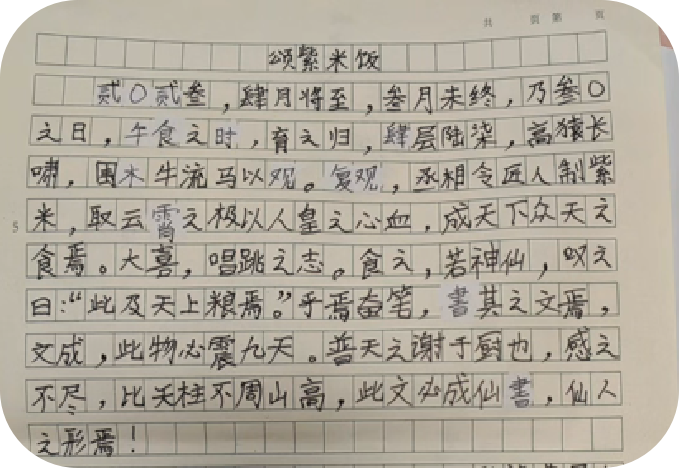 共 页 第 页
颂紫米饭
贰〇贰叁，肆月将至，叁月未终，乃叁〇
之日，午食之时，育之归，肆层陆柒，高猿长
啸，围木牛流马以观。复观，丞相令匠人制紫
米，取云霄之极以人皇之心血，成天下众天之
5
食焉。大喜，唱跳之志。食之，若神仙，叹之
曰：“此及天上粮焉。”乎焉奋笔，書其之文焉，
文成，此物必震九天。普天之谢于厨也，感之
不尽，比天柱不周山高，此文必成仙書，仙人
之形焉！